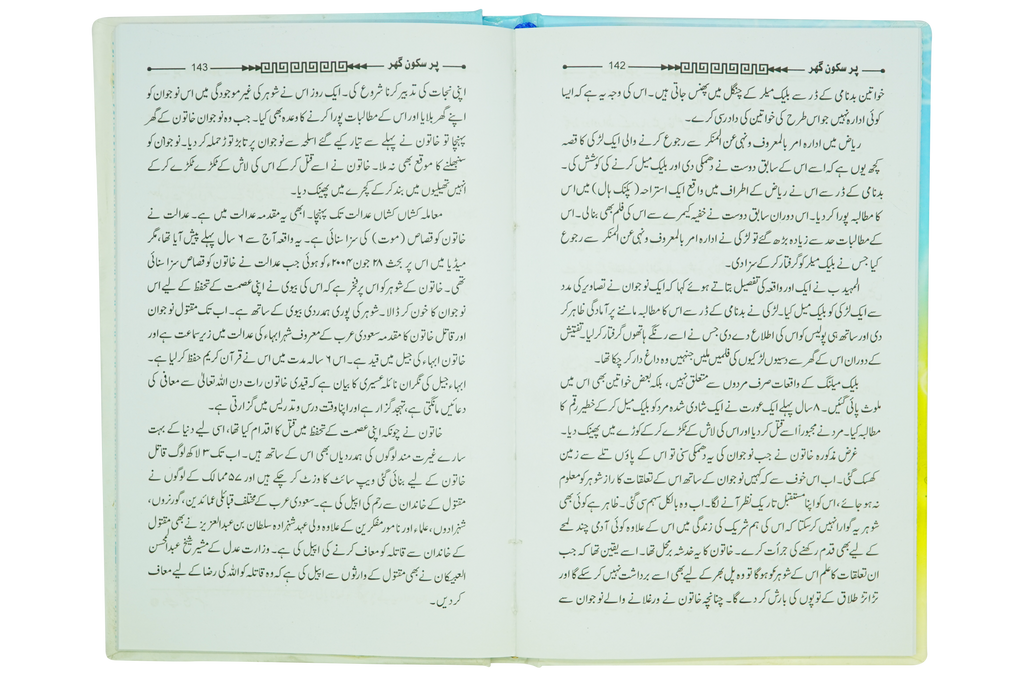 پر سکون گھر 142
خواتین بدنامی کے ڈر سے بلیک میلر کے چنگل میں پھنس جاتی ہیں۔ اس کی وجہ یہ ہے کہ ایسا
کوئی ادارہ نہیں جو اس طرح کی خواتین کی دادرسی کرے۔
ریاض میں ادارہ امر بالمعروف و نہی عن المنکر سے رجوع کرنے والی ایک لڑکی کا قصہ
کچھ یوں ہے کہ اسے اس کے سابق دوست نے دھمکی دی اور بلیک میل کرنے کی کوشش کی۔
بدنامی کے ڈر سے اس نے ریاض کے اطراف میں واقع ایک استراحہ (پکنک ہال) میں اس
کا مطالبہ پورا کر دیا۔ اس دوران سابق دوست نے خفیہ کیمرے سے اس کی فلم بھی بنالی۔ اس
کے مطالبات حد سے زیادہ بڑھ گئے تو لڑکی نے ادارہ امر بالمعروف و نہی عن المنکر سے رجوع
کیا جس نے بلیک میلر کو گرفتار کر کے سزا دی۔
المہیدب نے ایک اور واقعہ کی تفصیل بتاتے ہوئے کہا کہ ایک نوجوان نے تصاویر کی مدد
سے ایک لڑکی کو بلیک میل کیا۔ لڑکی نے بدنامی کے ڈر سے اس کا مطالبہ ماننے پر آمادگی ظاہر کر
دی اور ساتھ ہی پولیس کو اس کی اطلاع دے دی جس نے اسے رنگے ہاتھوں گرفتار کر لیا۔ تفتیش
کے دوران اس کے گھر سے دسیوں لڑکیوں کی فلمیں ملیں جنہیں وہ داغ دار کر چکا تھا۔
بلیک میلنگ کے واقعات صرف مردوں سے متعلق نہیں، بلکہ بعض خواتین بھی اس میں
ملوث پائی گئیں۔ ۸ سال پہلے ایک عورت نے ایک شادی شدہ مرد کو بلیک میل کر کے خطیر رقم کا
مطالبہ کیا۔ مرد نے مجبوراً اسے قتل کر دیا اور اس کی لاش کے ٹکڑے کر کے کوڑے میں پھینک دیا۔
غرض مذکورہ خاتون نے جب نوجوان کی یہ دھمکی سنی تو اس کے پاؤں تلے سے زمین
کھسک گئی۔ اب اس خوف سے کہ کہیں نوجوان کے ساتھ اس کے تعلقات کا راز شوہر کو معلوم
نہ ہو جائے، اس کو اپنا مستقبل تاریک نظر آنے لگا۔ اب وہ بالکل سہم سی گئی۔ ظاہر ہے کوئی بھی
شوہر یہ گوارا نہیں کر سکتا کہ اس کی ہم شریک کی زندگی میں اس کے علاوہ کوئی آدمی چند لمحے
کے لیے بھی قدم رکھنے کی جرأت کرے۔ خاتون کا یہ خدشہ برمحل تھا۔ اسے یقین تھا کہ جب
ان تعلقات کا علم اس کے شوہر کو ہوگا تو وہ پل بھر کے لیے بھی اسے برداشت نہیں کر سکے گا اور
تڑاتڑ طلاق کے توپوں کی بارش کر دے گا۔ چنانچہ خاتون نے ورغلانے والے نوجوان سے
پر سکون گھر 143
اپنی نجات کی تدبیر کرنا شروع کی۔ ایک روز اس نے شوہر کی غیر موجودگی میں اس نوجوان کو
اپنے گھر بلایا اور اس کے مطالبات پورا کرنے کا وعدہ بھی کیا۔ جب وہ نوجوان خاتون کے گھر
پہنچا تو خاتون نے پہلے سے تیار کیے گئے اسلحہ سے نوجوان پر تابڑ توڑ حملہ کر دیا۔ نوجوان کو
سنبھلنے کا موقع بھی نہ ملا۔ خاتون نے اسے قتل کر کے اس کی لاش کے ٹکڑے ٹکڑے کر کے
انہیں تھیلیوں میں بند کر کے کچرے میں پھینک دیا۔
معاملہ کشاں کشاں عدالت تک پہنچا۔ ابھی یہ مقدمہ عدالت میں ہے۔ عدالت نے
خاتون کو قصاص (موت) کی سزا سنائی ہے۔ یہ واقعہ آج سے ۶ سال پہلے پیش آیا تھا، مگر
میڈیا میں اس پر بحث ۲۸ جون ۲۰۰۴ء کو ہوئی جب عدالت نے خاتون کو قصاص سزا سنائی
تھی۔ خاتون کے شوہر کو اس پر فخر ہے کہ اس کی بیوی نے اپنی عصمت کے تحفظ کے لیے اس
نوجوان کا خون کر ڈالا۔ شوہر کی پوری ہمدردی بیوی کے ساتھ ہے۔ اب تک مقتول نوجوان
اور قاتل خاتون کا مقدمہ سعودی عرب کے معروف شہر ابہاء کی عدالت میں زیر سماعت ہے اور
خاتون ابہاء کی جیل میں قید ہے۔ اس ۶ سالہ مدت میں اس نے قرآن کریم حفظ کر لیا ہے۔
ابہاء جیل کی نگران نائلہ عسیری کا بیان ہے کہ قیدی خاتون رات دن اللہ تعالیٰ سے معافی کی
دعائیں مانگتی ہے، تہجد گزار ہے اور اپنا وقت درس و تدریس میں گزارتی ہے۔
خاتون نے چونکہ اپنی عصمت کے تحفظ میں قتل کا اقدام کیا تھا، اسی لیے دنیا کے بہت
سارے غیرت مند لوگوں کی ہمدردیاں بھی اس کے ساتھ ہیں۔ اب تک ۳ لاکھ لوگ قاتل
خاتون کے لیے بنائی گئی ویب سائٹ کا وزٹ کر چکے ہیں اور ۵۷ ممالک کے لوگوں نے
مقتول کے خاندان سے رحم کی اپیل کی ہے۔ سعودی عرب کے مختلف قبائلی عمائدین، گورنروں،
شہزادوں، علماء اور نامور مفکرین کے علاوہ ولی عہد شہزادہ سلطان بن عبدالعزیز نے بھی مقتول
کے خاندان سے قاتلہ کو معاف کرنے کی اپیل کی ہے۔ وزارت عدل کے مشیر شیخ عبدالمحسن
العبیکان نے بھی مقتول کے وارثوں سے اپیل کی ہے کہ وہ قاتلہ کو اللہ کی رضا کے لیے معاف
کر دیں۔